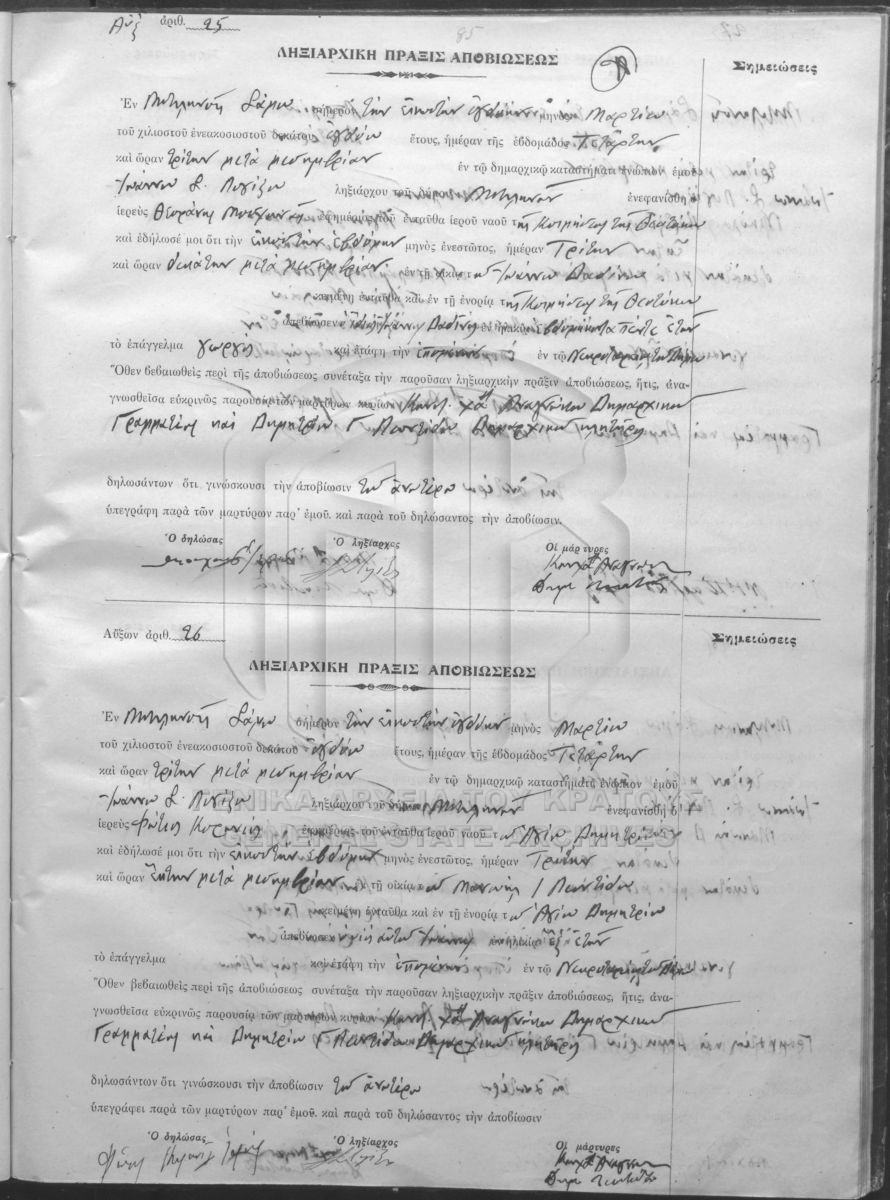 Αὔξ ἀριθ. 25
ΛΗΞΙΑΡΧΙΚΗ ΠΡΑΞΙΣ ΑΠΟΒΙΩΣΕΩΣ
Σημειώσεις
Ἐν Μυτιληνιοῖς Σάμου σήμερον τὴν εἰκοστὴν ὀγδόην μηνὸς Μαρτίου
τοῦ χιλιοστοῦ ἐνεακοσιοστοῦ δεκάτου ὀγδόου ἔτους, ἡμέραν τῆς ἑβδομάδος Τετάρτην
καὶ ὥραν τρίτην μετὰ μεσημβρίαν ἐν τῷ δημαρχικῷ καταστήματι ἐνώπιον ἐμοῦ
Ἰωάννου ληξιάρχου τοῦ δήμου Μυτιληνίων ἐνεφανίσθη ὁ
ἱερεὺς ἐφημέριος τοῦ ἐνταῦθα ἱεροῦ ναοῦ τῆς Κοιμήσεως τῆς Θεοτόκου
καὶ ἐδήλωσέ μοι ὅτι τὴν εἰκοστὴν ἑβδόμην μηνὸς ἐνεστῶτος, ἡμέραν Τρίτην
καὶ ὥραν δεκάτην μετὰ μεσημβρίαν ἐν τῇ οἰκίᾳ τοῦ Ἰωάννου
κειμένῃ ἐνταῦθα καὶ ἐν τῇ ἐνορίᾳ τῆς Κοιμήσεως τῆς Θεοτόκου
ἀπεβίωσεν ὁ Ἰωάννης ἐν ἡλικίᾳ ἑβδομήκοντα πέντε ἐτῶν
τὸ ἐπάγγελμα γεωργὸς καὶ ἐτάφη τὴν ἑπομένην ἐν τῷ Νεκροταφείῳ τοῦ Δήμου
Ὅθεν βεβαιωθεὶς περὶ τῆς ἀποβιώσεως συνέταξα τὴν παροῦσαν ληξιαρχικὴν πρᾶξιν ἀποβιώσεως, ἥτις, ἀνα-
γνωσθεῖσα εὐκρινῶς παρουσίᾳ τῶν μαρτύρων κυρίων Δημαρχικοῦ
Γραμματέως καὶ Δημητρίου Γ. Δημαρχικοῦ κλητῆρος
δηλωσάντων ὅτι γινώσκουσι τὴν ἀποβίωσιν τοῦ ἀνωτέρω
ὑπεγράφη παρὰ τῶν μαρτύρων παρ' ἐμοῦ. καὶ παρὰ τοῦ δηλώσαντος τὴν ἀποβίωσιν.
Ὁ δηλώσας Ὁ ληξίαρχος Οἱ μάρτυρες
Αὔξων ἀριθ. 26
ΛΗΞΙΑΡΧΙΚΗ ΠΡΑΞΙΣ ΑΠΟΒΙΩΣΕΩΣ
Σημειώσεις
Ἐν Μυτιληνιοῖς Σάμου σήμερον τὴν εἰκοστὴν ὀγδόην μηνὸς Μαρτίου
τοῦ χιλιοστοῦ ἐνεακοσιοστοῦ δεκάτου ὀγδόου ἔτους, ἡμέραν τῆς ἑβδομάδος Τετάρτην
καὶ ὥραν τρίτην μετὰ μεσημβρίαν ἐν τῷ δημαρχικῷ καταστήματι ἐνώπιον ἐμοῦ
ΓΕΝΙΚΑ ΑΡΧΕΙΑ ΤΟΥ ΚΡΑΤΟΥΣ
Ἰωάννου ληξιάρχου τοῦ δήμου Μυτιληνίων ἐνεφανίσθη ὁ
GENERAL STATE ARCHIVES
ἱερεὺς Φώτιος ἐφημέριος τοῦ ἐνταῦθα ἱεροῦ ναοῦ τοῦ Ἁγίου Δημητρίου
καὶ ἐδήλωσέ μοι ὅτι τὴν εἰκοστὴν ἑβδόμην μηνὸς ἐνεστῶτος, ἡμέραν Τρίτην
καὶ ὥραν ἕκτην μετὰ μεσημβρίαν ἐν τῇ οἰκίᾳ τοῦ
κειμένῃ ἐνταῦθα καὶ ἐν τῇ ἐνορίᾳ τοῦ Ἁγίου Δημητρίου
ἀπεβίωσεν ὁ υἱὸς αὐτοῦ Ἰωάννης ἐν ἡλικίᾳ ἓξ ἐτῶν
τὸ ἐπάγγελμα καὶ ἐτάφη τὴν ἑπομένην ἐν τῷ Νεκροταφείῳ τοῦ Δήμου
Ὅθεν βεβαιωθεὶς περὶ τῆς ἀποβιώσεως συνέταξα τὴν παροῦσαν ληξιαρχικὴν πρᾶξιν ἀποβιώσεως, ἥτις, ἀνα-
γνωσθεῖσα εὐκρινῶς παρουσίᾳ τῶν μαρτύρων κυρίων Δημαρχικοῦ
Γραμματέως καὶ Δημητρίου Γ Δημαρχικοῦ κλητῆρος
δηλωσάντων ὅτι γινώσκουσι τὴν ἀποβίωσιν τοῦ ἀνωτέρω
ὑπεγράφει παρὰ τῶν μαρτύρων παρ' ἐμοῦ. καὶ παρὰ τοῦ δηλώσαντος τὴν ἀποβίωσιν
Ὁ δηλώσας Ὁ ληξίαρχος Οἱ μάρτυρες